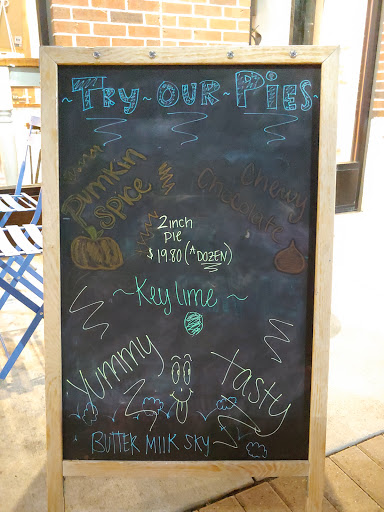 ~ TRY ~ OUR ~ PIES ~
PUMKIN
SPICE
Cherry
Chocolate
2inch
Pie
$19.80 (A DOZEN)
~ Key lime ~
yummy
tasty
BUTTER MILK SKY